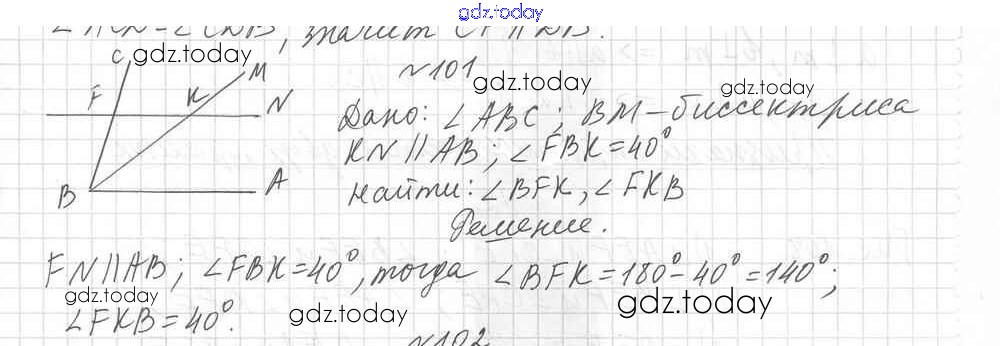 gdz.today
значит
gdz.today
№101
gdz.today
gdz.today
C
M
F
K
N
B
A
Дано: ∠ABC; BM - биссектриса
KN || AB; ∠FBK = 40°
Найти: ∠BFK, ∠FKB
Решение.
FN || AB; ∠FBK = 40°, тогда ∠BFK = 180° - 40° = 140°;
gdz.today
∠FKB = 40°.
gdz.today
gdz.today
№102